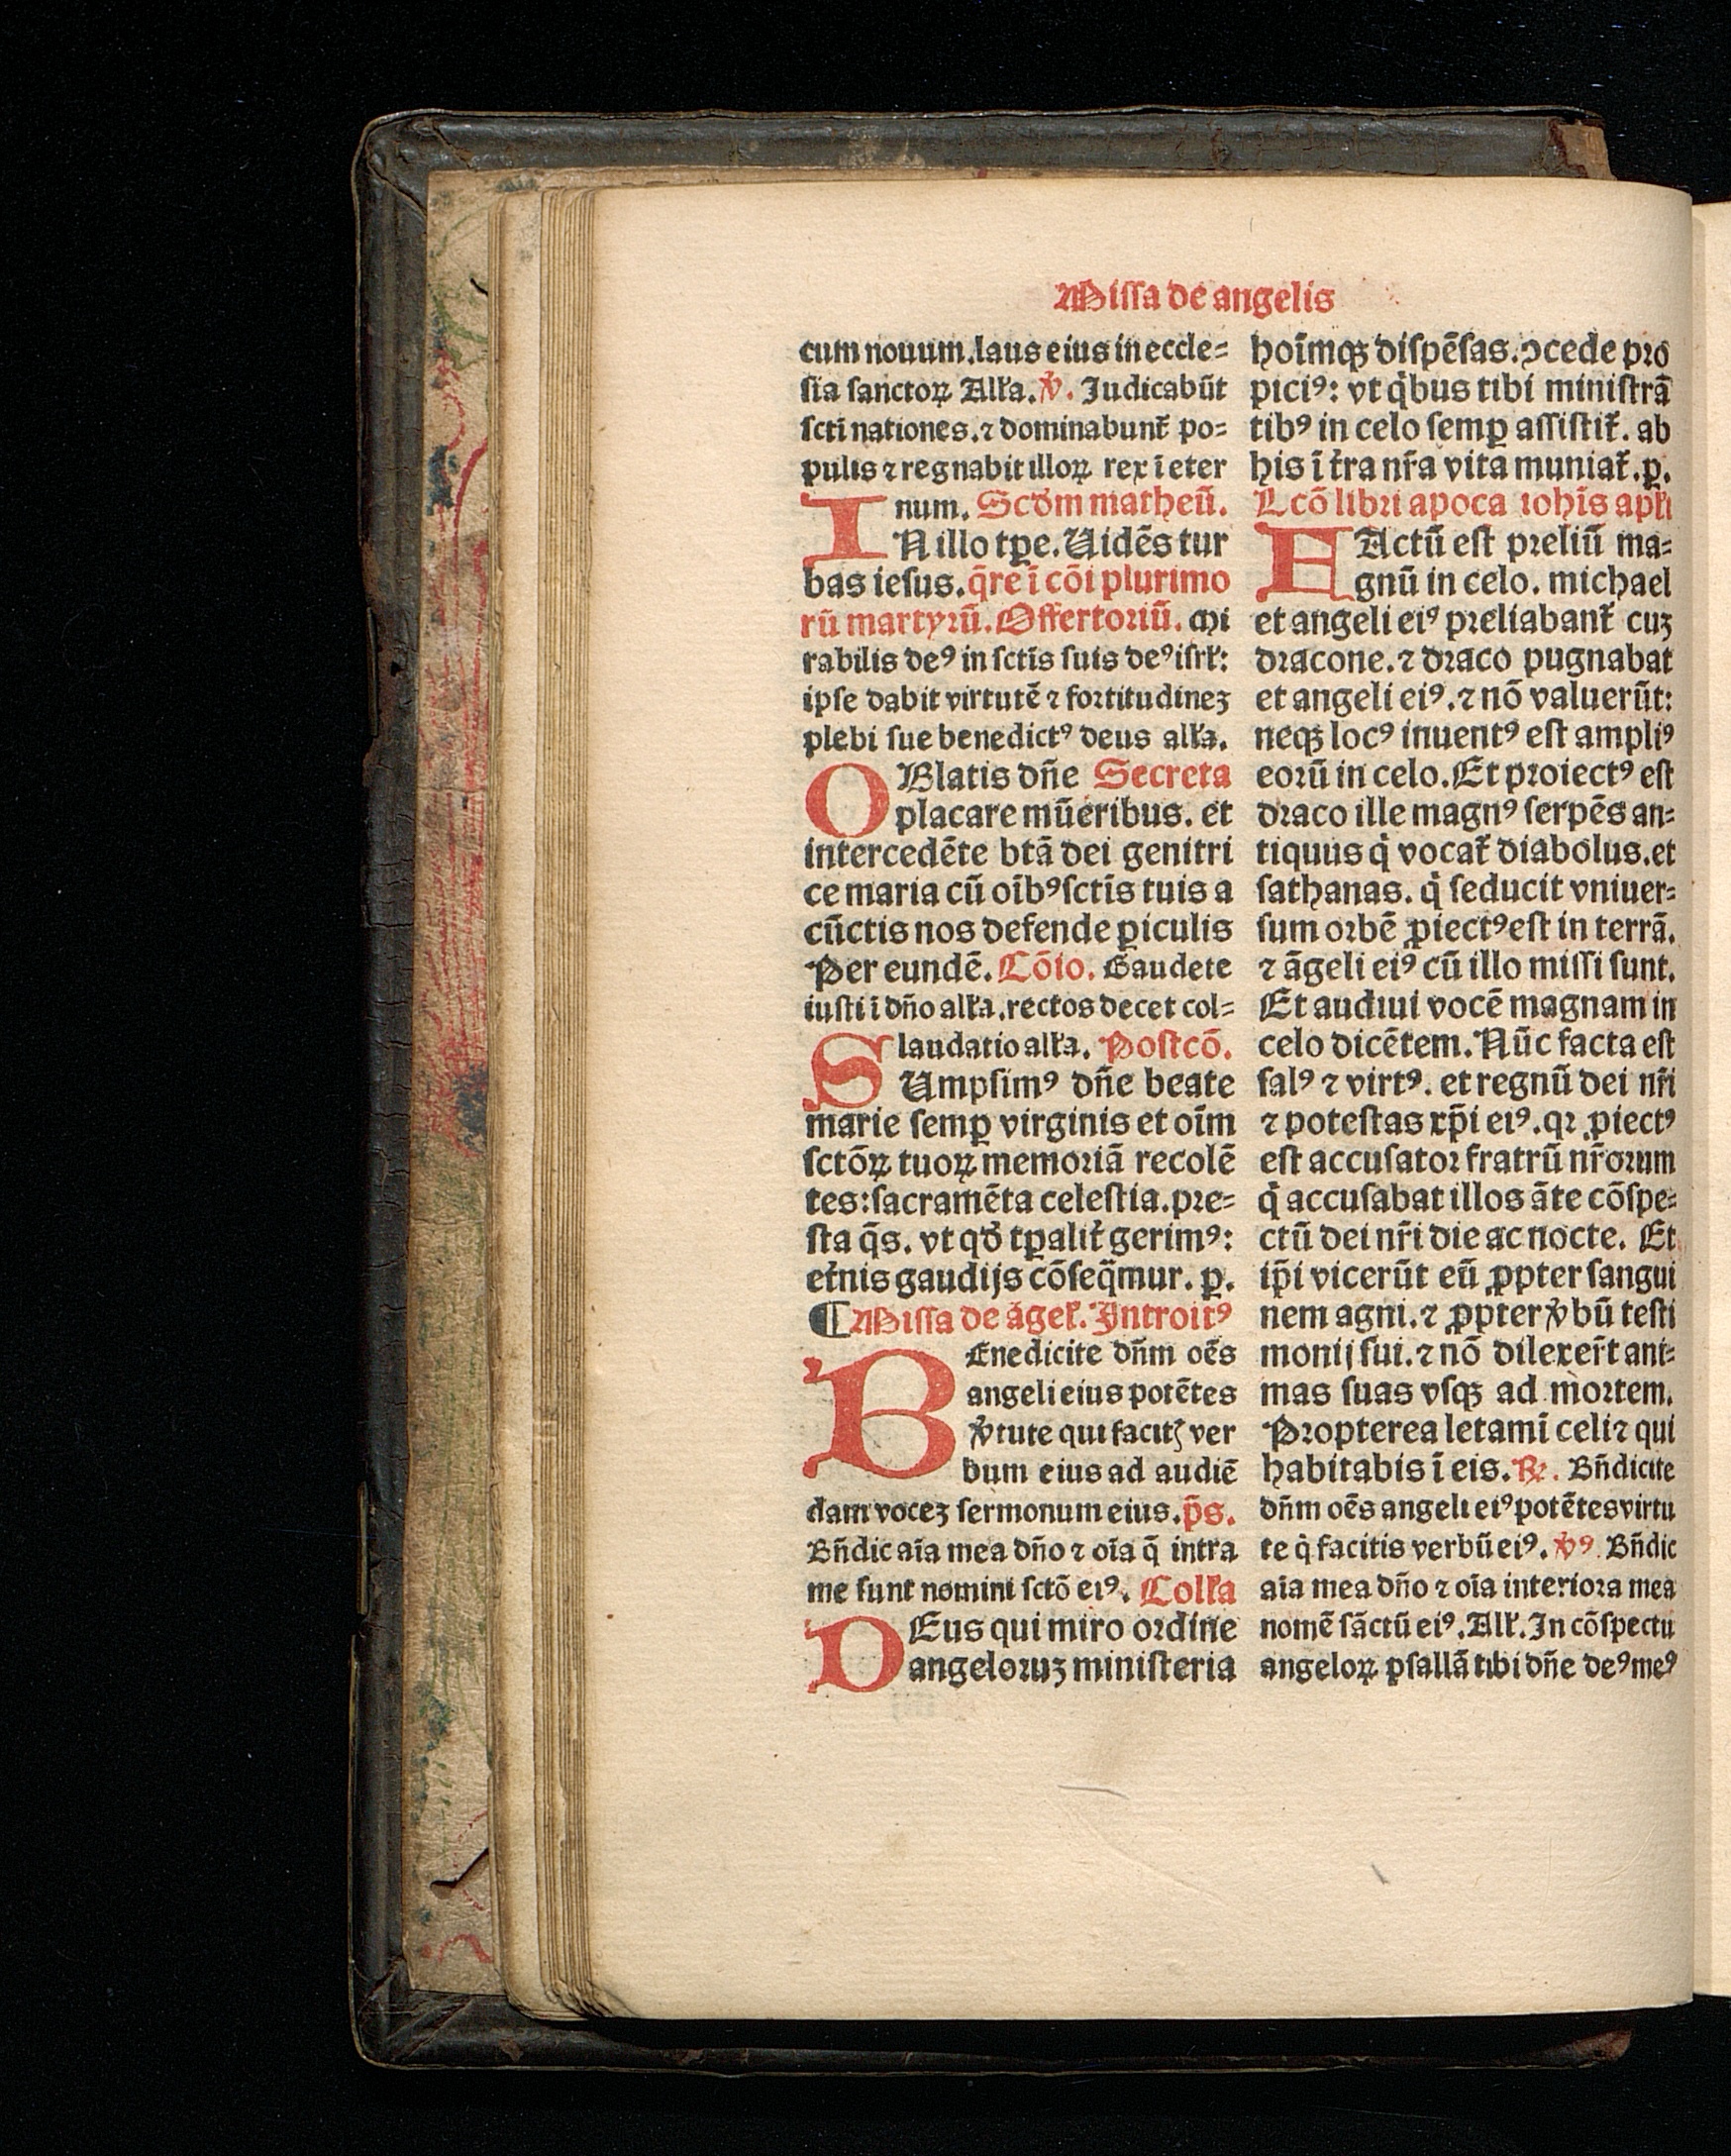 Missa de angelis
cum nouum.laus eius in eccle=
sia sanctoꝝ Alľa. ꝟ. Judicabūt
sctī nationes.⁊ dominabunť po=
pulis ⁊ regnabit illoꝝ rex ī eter
num. Scďm matheū.
IN illo tꝑe. Uidēs tur
bas iesus. q̄re ī cōi plurimo
rū martyrū. Offertoriū. Mi
rabilis deꝰ in sctīs suis deꝰ isrľ:
ipse dabit virtutē ⁊ fortitudineʒ
plebi sue benedictꝰ deus alľa.
OBlatis dn̄e Secreta
placare mūeribus. et
intercedēte btā dei genitri
ce maria cū oībꝰ sctīs tuis a
cūctis nos defende ꝑiculis
Per eundē. Cōio. Gaudete
iusti ī dn̄o alľa.rectos decet col=
laudatio alľa. Postcō.
SUmpsimꝰ dn̄e beate
marie semꝑ virginis et oīm
sctōꝝ tuoꝝ memoriā recolē
tes:sacramēta celestia.pre=
sta q̄s. vt qď tꝑaliť gerimꝰ:
eťnis gaudijs cōseq̄mur. ꝑ.
¶Missa de āgeľ. Introitꝰ
BEnedicite dn̄m oēs
angeli eius potētes
ꝟtute qui facitꝭ ver
bum eius ad audiē
dam voceʒ sermonum eius. p̄s.
Bn̄dic aīa mea dn̄o ⁊ oīa q̄ intra
me sunt nomini sctō eiꝰ. Colľa
DEus qui miro ordine
angeloruʒ ministeria
hoīmqꝫ dispēsas.ꝯcede pro
piciꝰ: vt q̇bus tibi ministrā
tibꝰ in celo semꝑ assistiť. ab
his ī ťra nr̄a vita muniať.ꝑ.
Lcō libri apoca iohīs apľi
FActū est preliū ma=
gnū in celo. michael
et angeli eiꝰ preliabanť cuʒ
dracone.⁊ draco pugnabat
et angeli eiꝰ.⁊ nō valuerūt:
neqꝫ locꝰ inuentꝰ est ampliꝰ
eorū in celo.Et proiectꝰ est
draco ille magnꝰ serpēs an=
tiquus q̇ vocať diabolus.et
sathanas. q̇ seducit vniuer=
sum orbē ꝓiectꝰ est in terrā.
⁊ āgeli eiꝰ cū illo missi sunt.
Et audiui vocē magnam in
celo dicētem. Nūc facta est
salꝰ ⁊ virtꝰ. et regnū dei nr̄i
⁊ potestas xp̄i eiꝰ.qꝛ ꝓiectꝰ
est accusator fratrū nr̄orum
q̇ accusabat illos āte cōspe=
ctū dei nr̄i die ac nocte. Et
ip̄i vicerūt eū ꝓpter sangui
nem agni.⁊ ꝓpter ꝟbū testi
monij sui.⁊ nō dilexer̄t ani=
mas suas vsqꝫ ad mortem.
Propterea letamī celi ⁊ qui
habitabis ī eis. ℟. Bn̄dicite
dn̄m oēs angeli eiꝰ potētes virtu
te q̇ facitis verbū eiꝰ. ꝟꝰ. Bn̄dic
aīa mea dn̄o ⁊ oīa interiora mea
nomē sāctū eiꝰ.Alľ.In cōspectu
angeloꝝ psallā tibi dn̄e deꝰ meꝰ